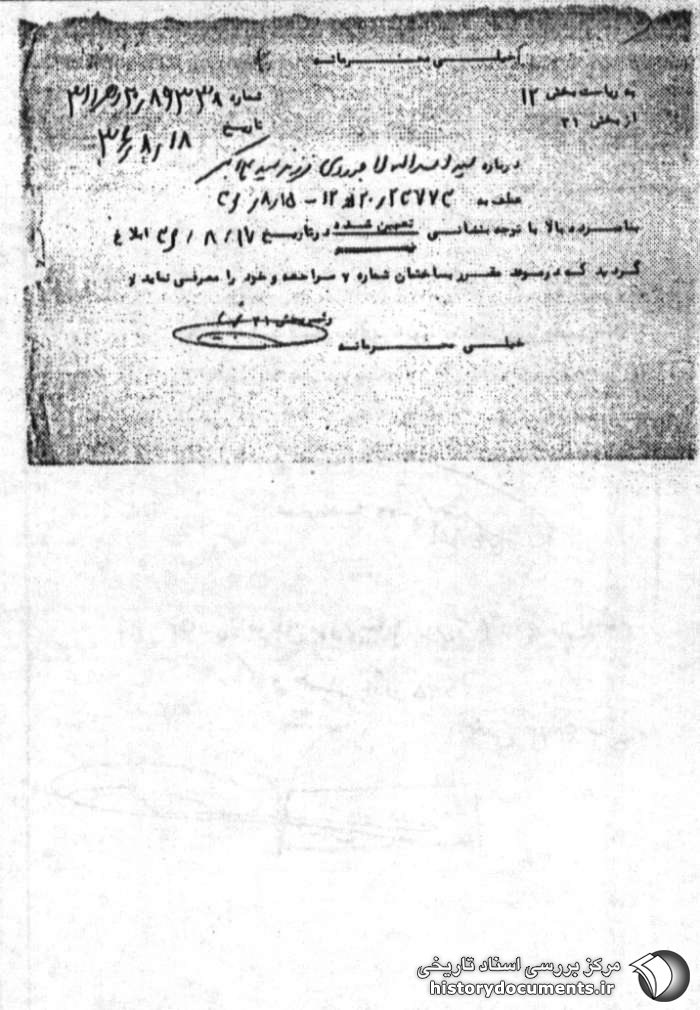 خیلی محرمانه
به ریاست بخش ۱۲
از بخش ۲۱
شماره
تاریخ ۳۶/۸/۱۸
درباره سید اسداله لاجوردی فرزند سید علی اکبر
عطف به ۳۶/۸/۱۵
نامبرده بالا با توجه بنشانی تعیین شده در تاریخ ۳۶/۸/۱۷ ابلاغ
گردید که در موعد مقرر بساختمان شماره ۷ مراجعه و خود را معرفی نماید
رئیس بخش ۲۱
خیلی محرمانه
مرکز بررسی اسناد تاریخی
historydocuments.ir